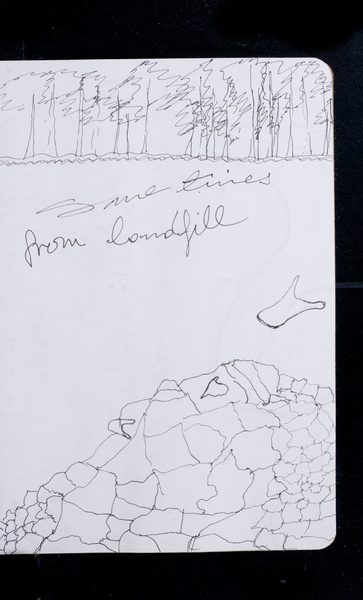 Some times
from landfill